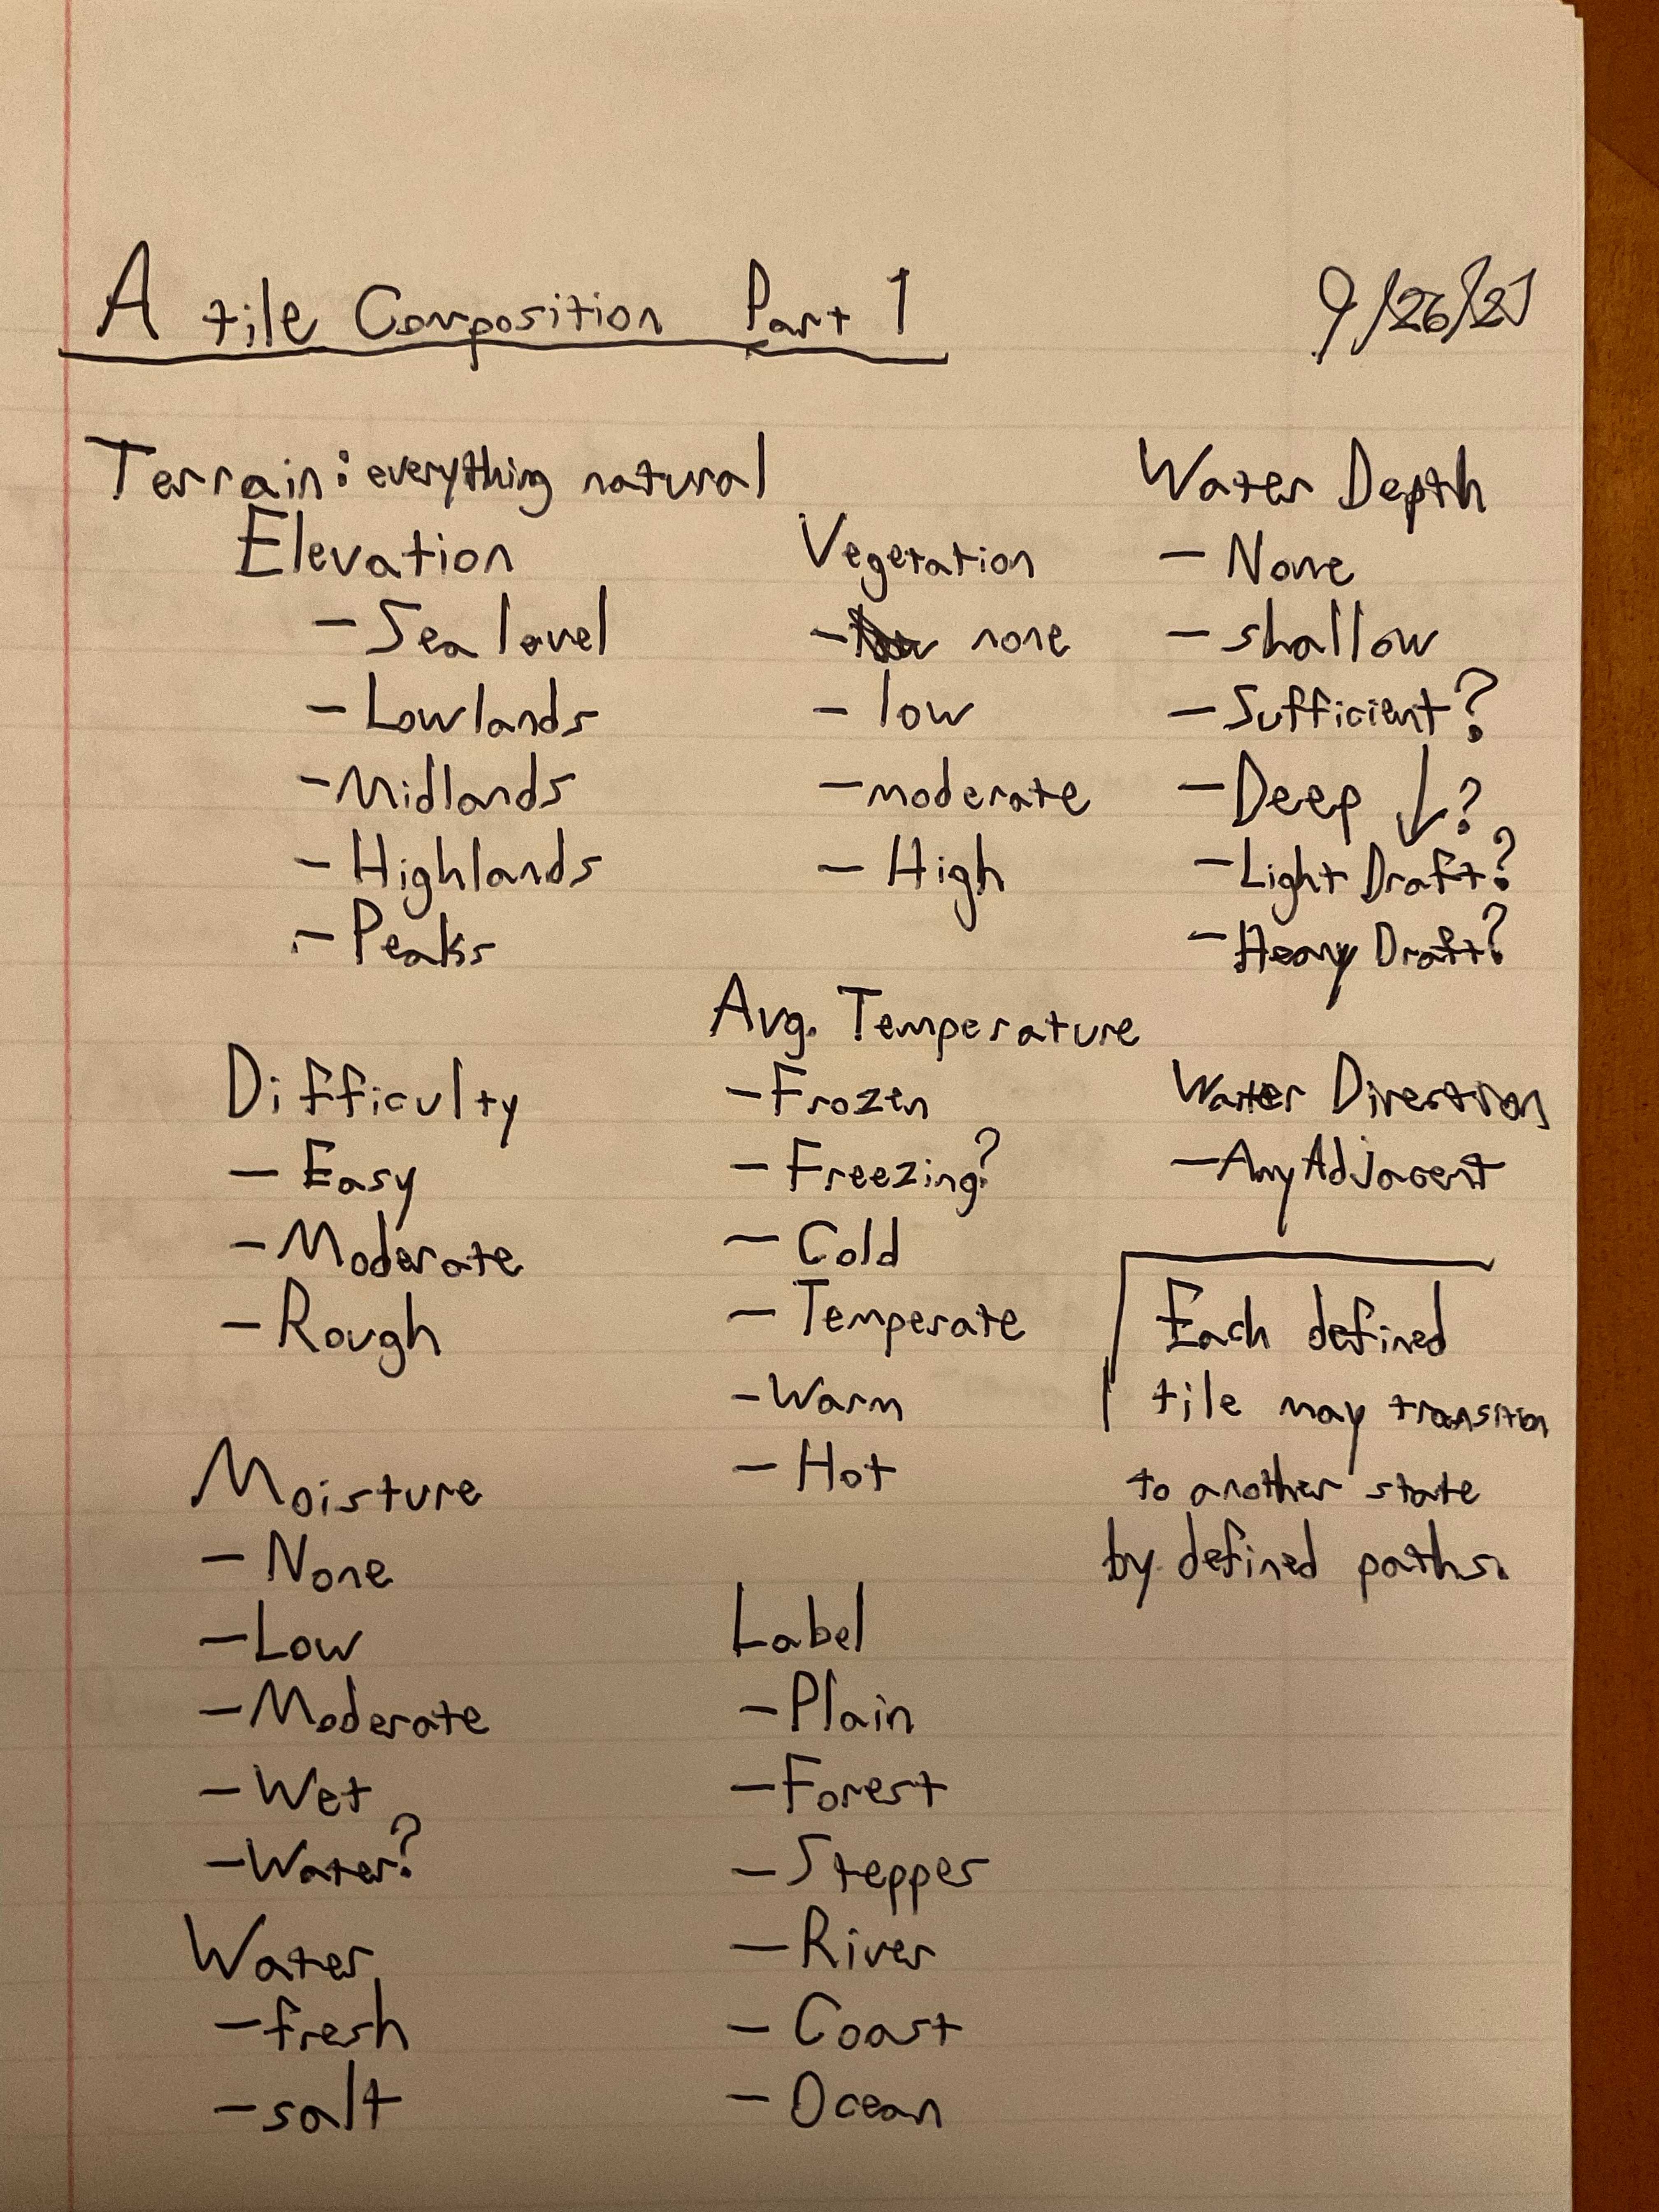 A tile Composition Part 1
9/26/21
Terrain: everything natural
Elevation
- Sea level
- Lowlands
- Midlands
- Highlands
- Peaks
Difficulty
- Easy
- Moderate
- Rough
Moisture
- None
- Low
- Moderate
- Wet
- Water?
Water
- fresh
- salt
Vegetation
- none
- low
- moderate
- High
Avg. Temperature
- Frozen
- Freezing?
- Cold
- Temperate
- Warm
- Hot
Label
- Plain
- Forest
- Stepper
- River
- Coast
- Ocean
Water Depth
- None
- shallow
- Sufficient?
- Deep ↓?
- Light Draft?
- Heavy Draft?
Water Direction
- Any Adjacent
Each defined
tile may transition
to another state
by defined paths.